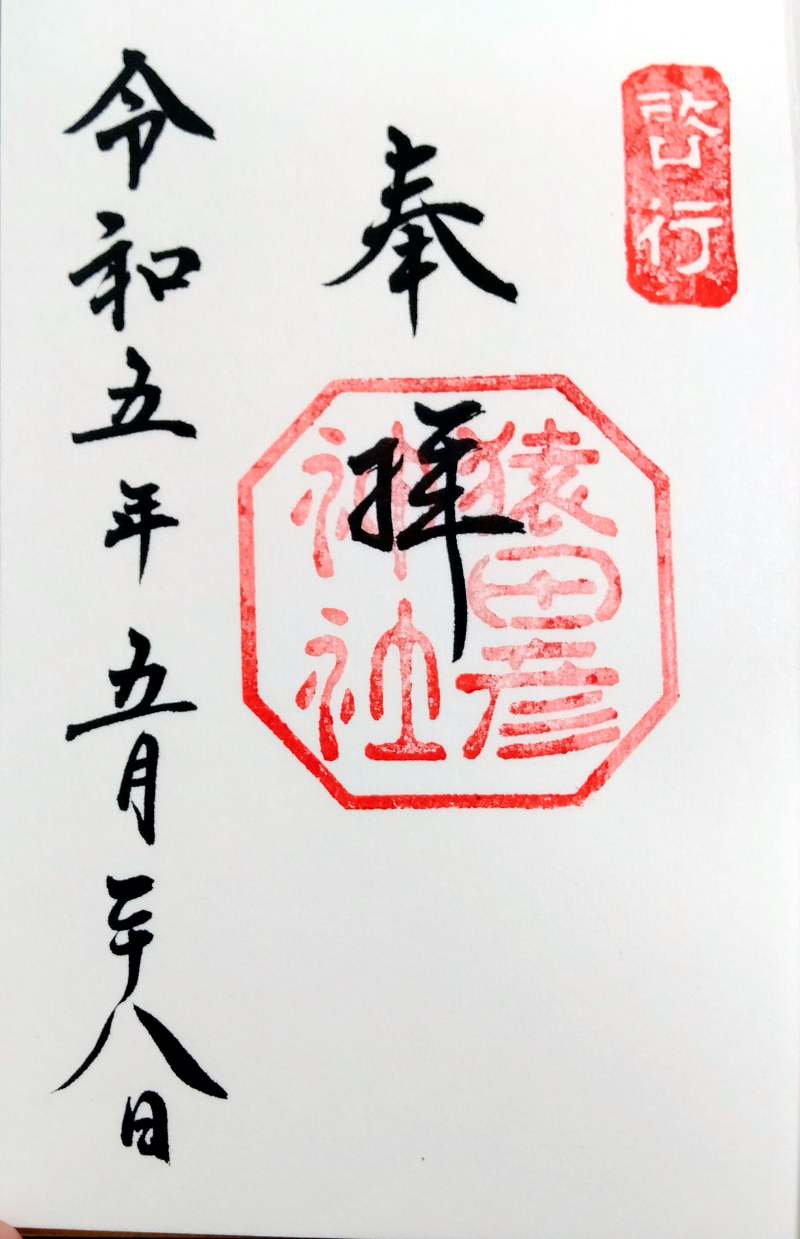 啓行
奉拝
猿田彦
神社
令和五年五月二十八日